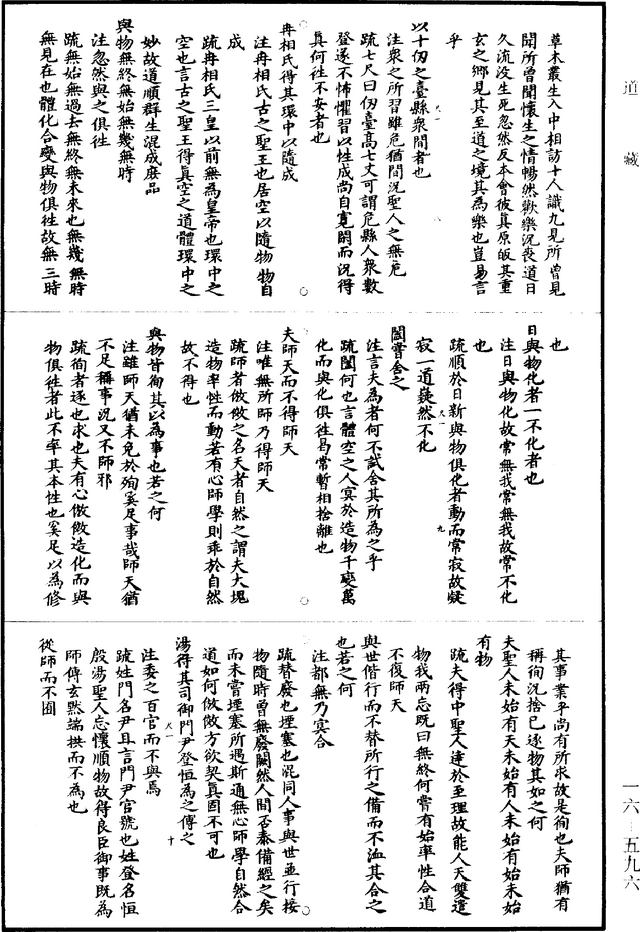 道藏
草木叢生入中相訪十人識九見所曾見
聞所曾聞懷生之情暢然歡樂況喪道日
久流没生死忽然反本會彼真原皈其重
玄之鄉見其至道之境其為樂也豈易言
乎
以十仞之臺縣衆間者也
注衆之所習雖危猶閒況聖人之無危
疏七尺曰仞臺高七丈可謂危縣人衆數
登遂不怖懼習以性成尚自寬閑而況得
真何往不安者也
冉相氏得其環中以隨成
注冉相氏古之聖王也居空以隨物物自
成
疏冉相氏三皇以前無為皇帝也環中之
空也言古之聖王得真空之道體環中之
妙故道順群生混成庶品
與物無終無始無幾無時
注忽然與之俱往
疏無始無過去無終無未來也無幾無時
無見在也體化合變與物俱往故無三時
也
日與物化者一不化者也
注日與物化故常無我常無我故常不化
也
疏順於日新與物俱化者動而常寂故凝
寂一道嶷然不化
闔嘗舍之
注言夫為者何不試舍其所為之乎
疏闔何也言體空之人冥於造物千變萬
化而與化俱往曷常暫相捨離也
夫師天而不得師天
注唯無所師乃得師天
疏師者倣傚之名天者自然之謂夫大塊
造物率性而動若有心師學則乖於自然
故不得也
與物皆徇其以為事也若之何
注雖師天猶未免於殉奚足事哉師天猶
不足稱事況又不師邪
疏徇者逐也求也夫有心倣傚造化而與
物俱往者此不率其本性也奚足以為修
其事業乎尚有所求故是徇也夫師猶有
稱徇況捨己逐物其如之何
夫聖人未始有天未始有人未始有始未始
有物
疏夫得中聖人達於至理故能人天雙遣
物我兩忘既曰無終何嘗有始率性合道
不復師天
與世偕行而不替所行之備而不洫其合之
也若之何
注都無乃冥合
疏替廢也堙塞也混同人事與世並行接
物隨時曾無廢闕然人間否泰備經之矣
而未嘗堙塞所遇斯通無心師學自然合
道如何倣傚方欲契真固不可也
湯得其司御門尹登恒為之傅之
注委之百官而不與焉
疏姓門名尹且言門尹官號也姓登名恒
殷湯聖人忘懷順物故得良臣御事既為
師傅玄默端拱而不為也
從師而不囿
一六—五九六